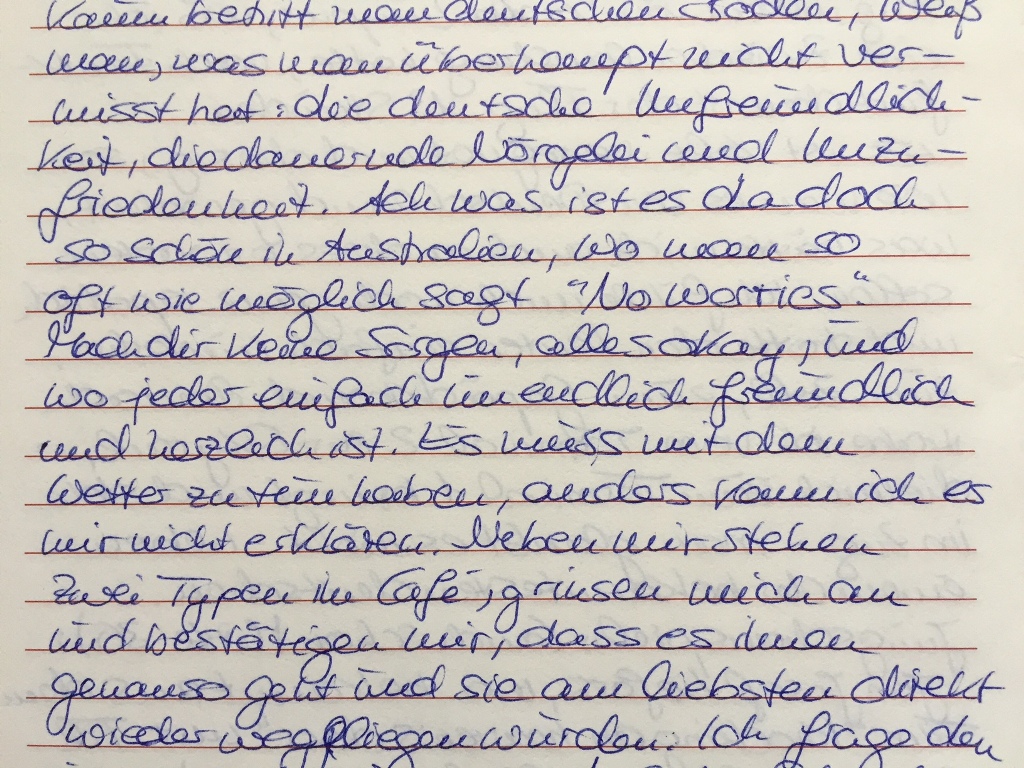 Kaum betritt man deutschen Boden, weiß
man, was man überhaupt nicht ver-
misst hat: die deutsche Unfreundlich-
keit, die dauernde Nörgelei und Unzu-
friedenheit. Ach was ist es da doch
so schön in Australien, wo man so
oft wie möglich sagt "No worries".
Mach dir keine Sorgen, alles okay, und
wo jeder einfach unendlich freundlich
und herzlich ist. Es muss mit dem
Wetter zu tun haben, anders kann ich es
mir nicht erklären. Neben mir stehen
zwei Typen im Café, grinsen mich an
und bestätigen mir, dass es ihnen
genauso geht und sie am liebsten direkt
wieder wegfliegen würden. Ich frage den